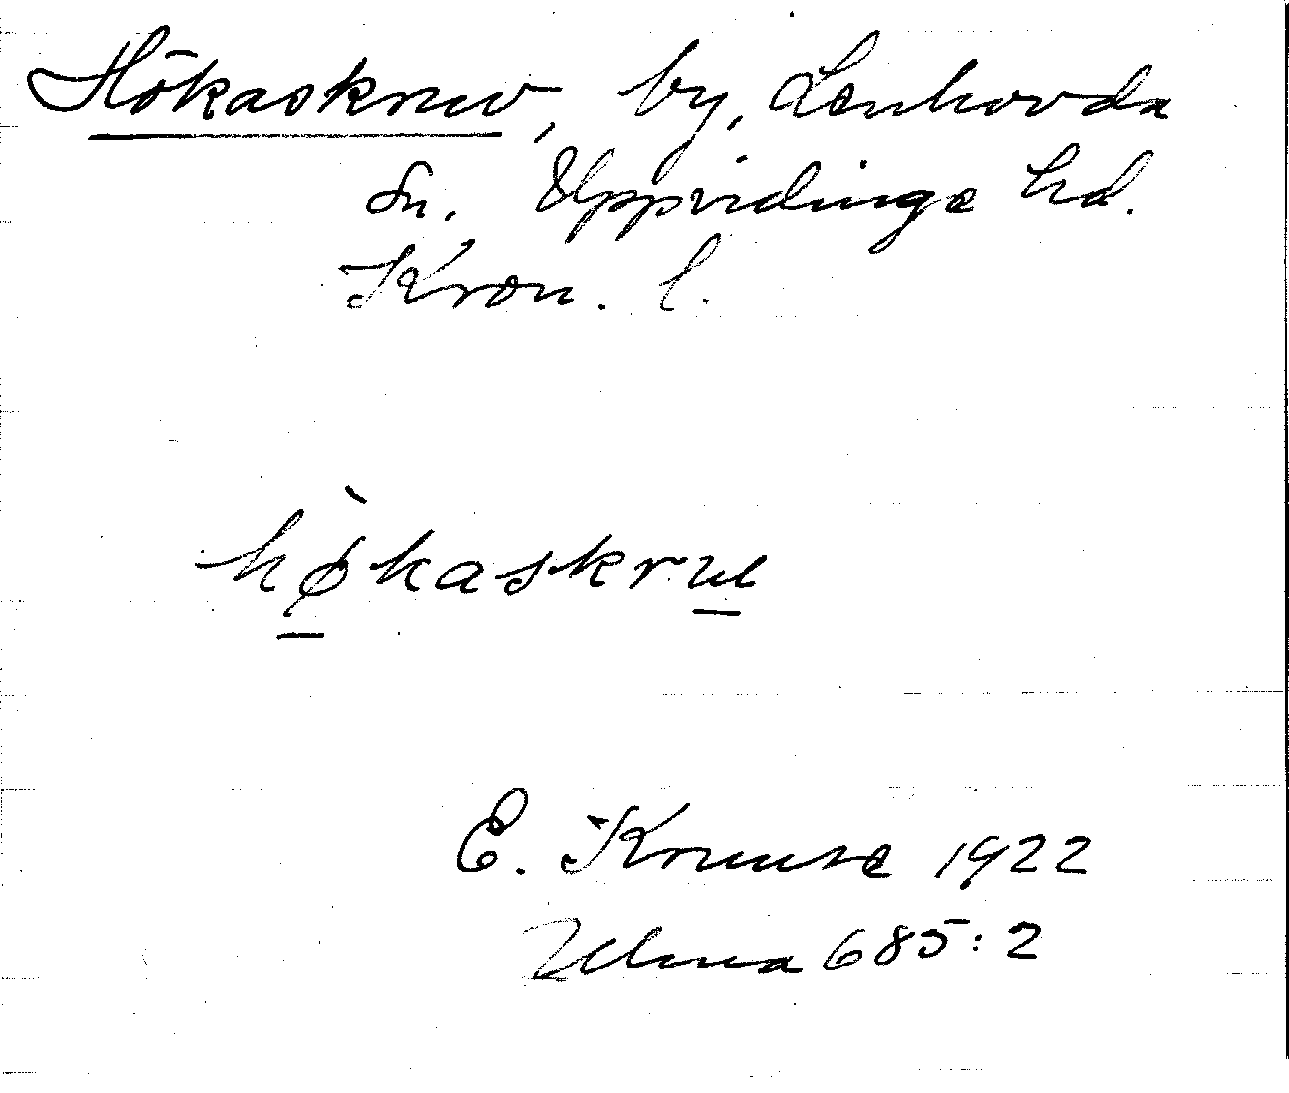 Hökaskruv, by, Lenhovda
Sn. Uppvidinge hd.
Kron. l.
hø̀kaskrul
E. Kruuse 1922
Ulma 685:2